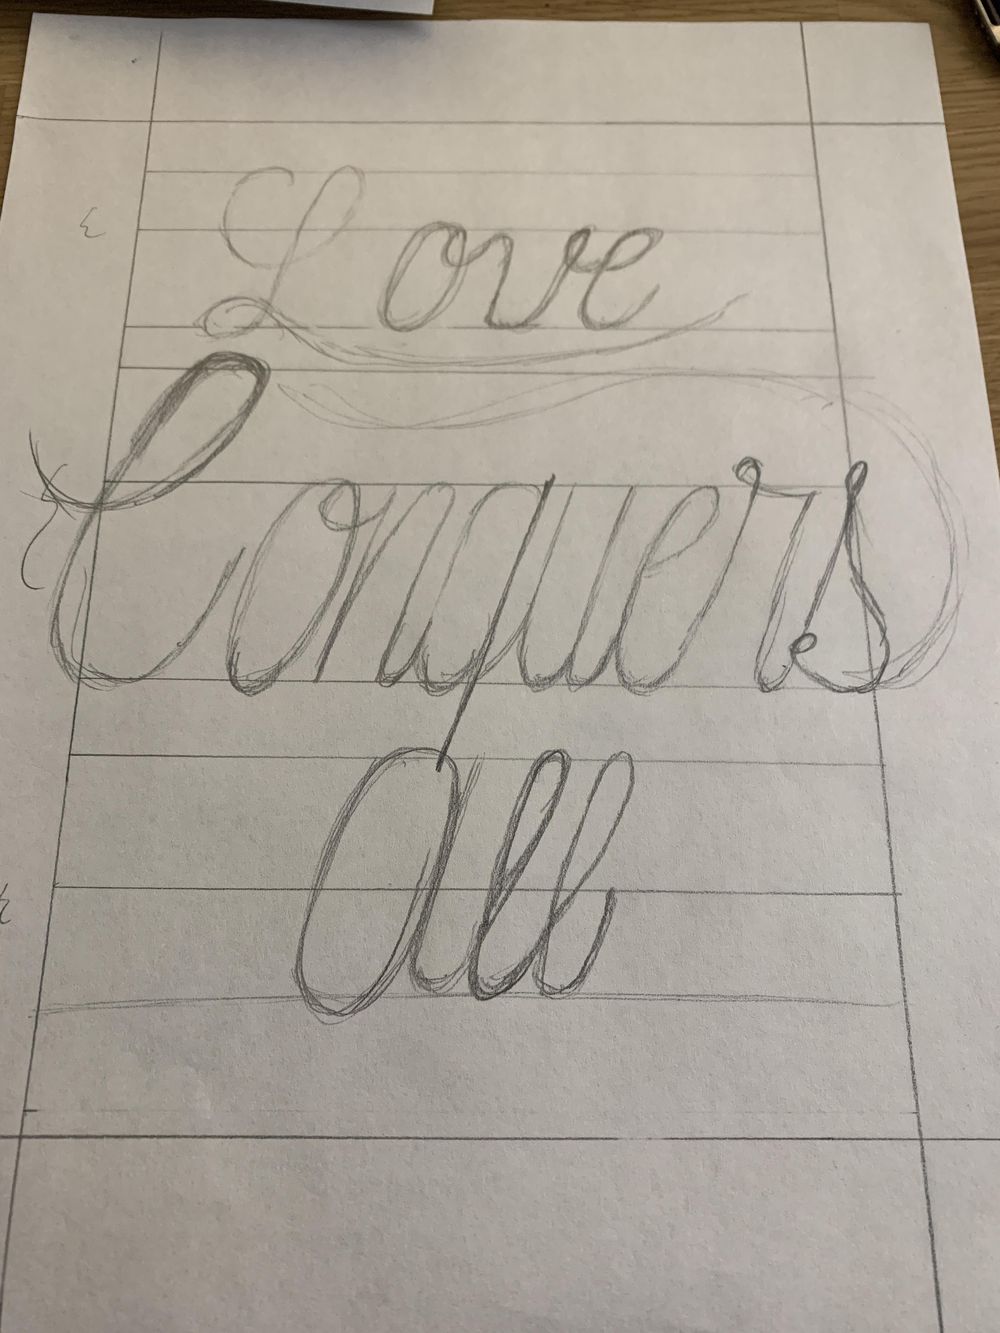 Love
Conquers
All